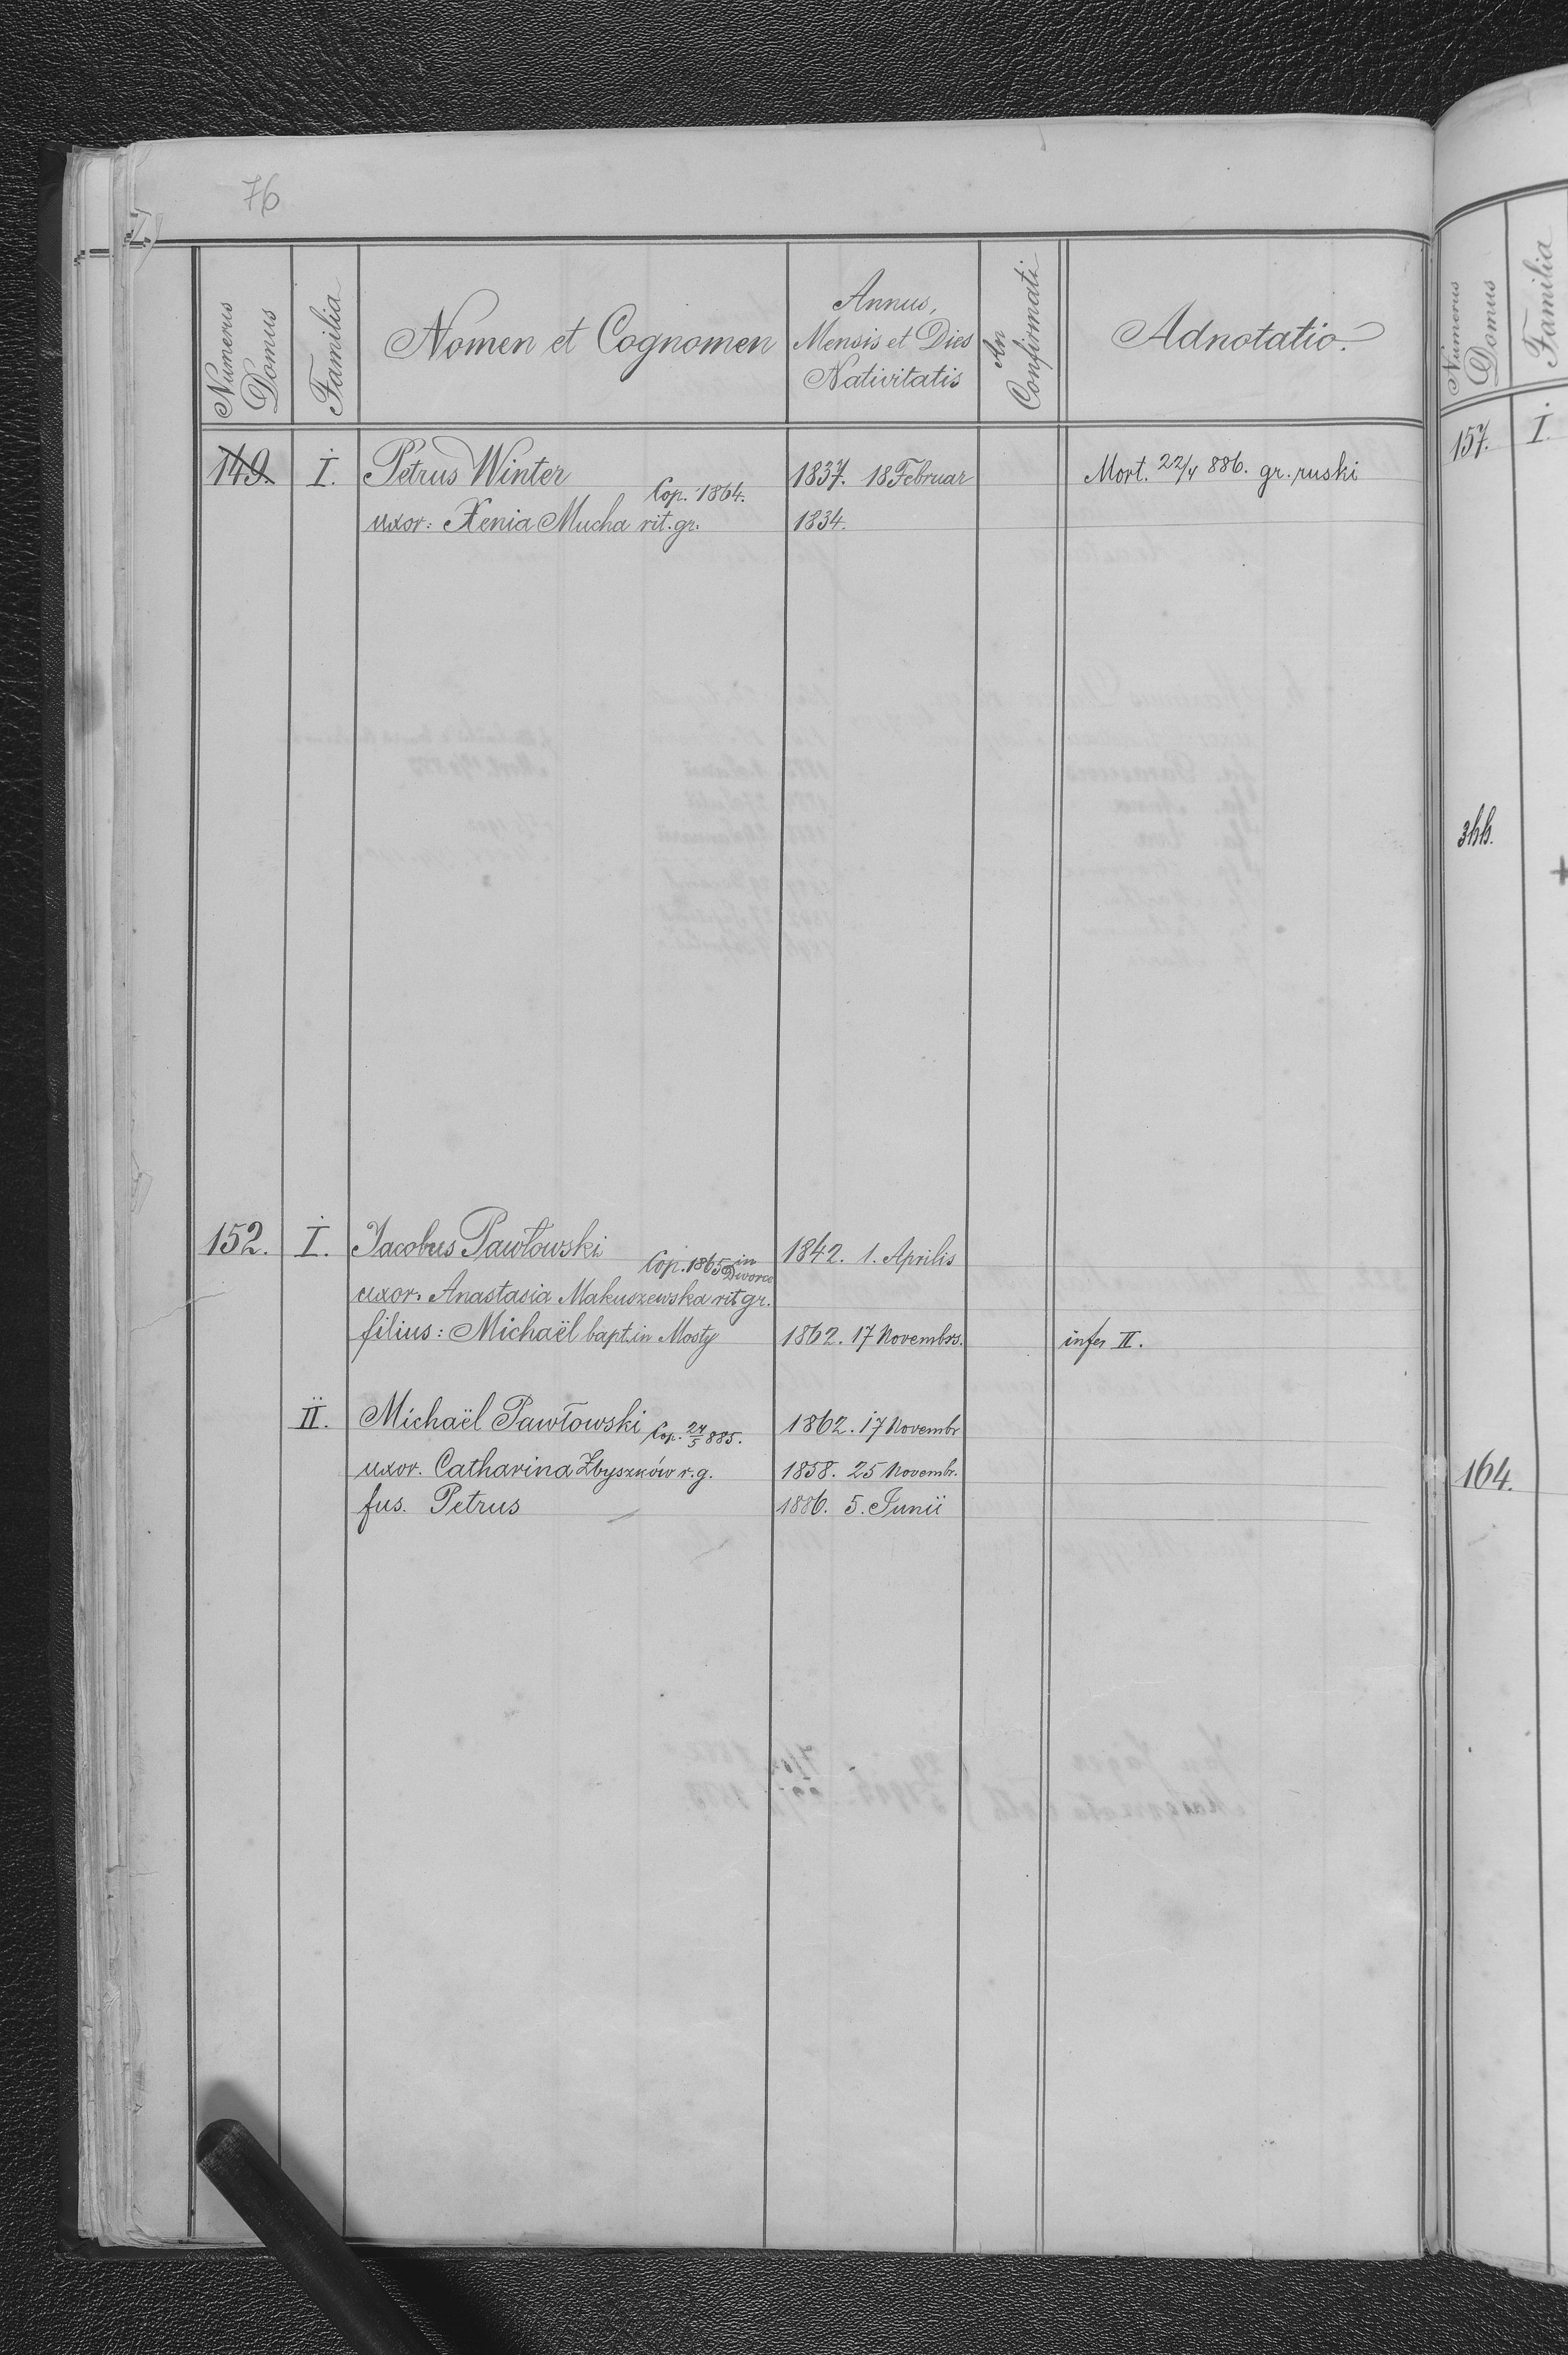 76
Numerus Domus
Familia
Nomen et Cognomen
Annus, Mensis et Dies Nativitatis
An Confirmati
Adnotatio.
149. I. Petrus Winter 1837. 18 Februar Mort. 22/4 886. gr. ruski
Cop. 1864.
uxor: Xenia Mucha rit. gr. 1834.
152. I. Jacobus Pawłowski 1842. 1. Aprilis
Cop. 1865 in Dworce
uxor. Anastasia Makuszewska rit gr.
filius: Michaël bapt. in Mosty 1862. 17 Novembrs. infer II.
II. Michaël Pawłowski Cop. 24/5 885. 1862. 17 Novembr
uxor. Catharina Zbyszków r. g. 1858. 25 Novembr.
fus. Petrus 1886. 5. Junii
Numerus Domus
Familia
157. I.
164.